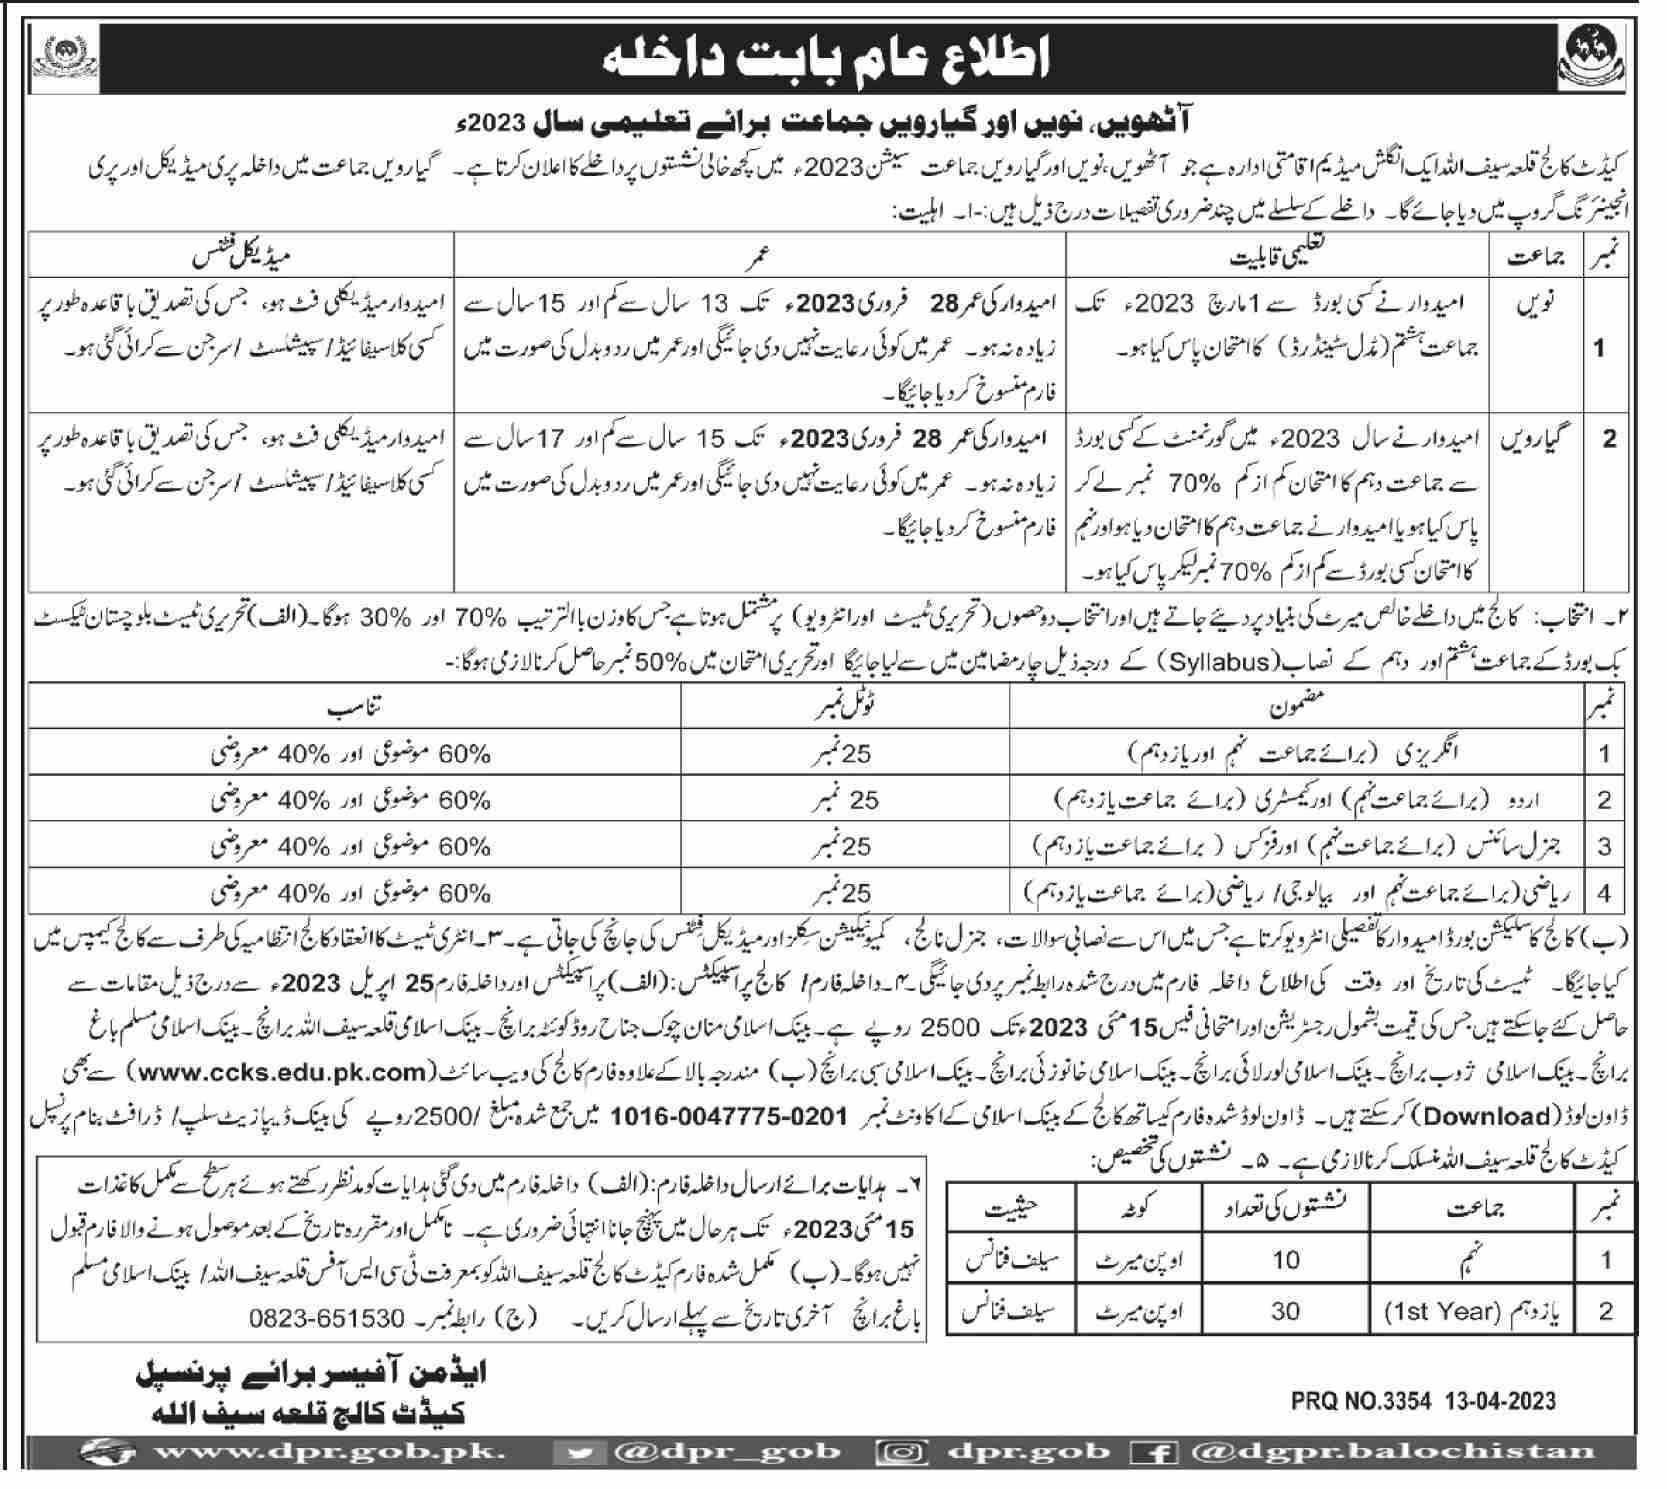 اطلاع عام بابت داخلہ
آٹھویں، نویں اور گیارویں جماعت برائے تعلیمی سال 2023ء
کیڈٹ کالج قلعہ سیف اللہ ایک انگلش میڈیم اقامتی ادارہ ہے جو آٹھویں، نویں اور گیارویں جماعت سیشن 2023ء میں کچھ خالی نشستوں پر داخلے کا اعلان کرتا ہے۔ گیارویں جماعت میں داخلہ پری میڈیکل اور پری
انجینئرنگ گروپ میں دیا جائے گا۔ داخلے کے سلسلے میں چند ضروری تفصیلات درج ذیل ہیں:-۱۔ اہلیت:
نمبر جماعت تعلیمی قابلیت عمر میڈیکل فٹنس
1 نویں امیدوار نے کسی بورڈ سے 1 مارچ 2023ء تک امیدوار کی عمر 28 فروری 2023ء تک 13 سال سے کم اور 15 سال سے امیدوار میڈیکلی فٹ ہو، جس کی تصدیق باقاعدہ طور پر
جماعت ہشتم (مڈل سٹینڈرڈ) کا امتحان پاس کیا ہو۔ زیادہ نہ ہو۔ عمر میں کوئی رعایت نہیں دی جائیگی اور عمر میں ردوبدل کی صورت میں کسی کلاسیفائیڈ/سپیشلسٹ/سرجن سے کرائی گئی ہو۔
فارم منسوخ کر دیا جائیگا۔
2 گیارویں امیدوار نے سال 2023ء میں گورنمنٹ کے کسی بورڈ امیدوار کی عمر 28 فروری 2023ء تک 15 سال سے کم اور 17 سال سے امیدوار میڈیکلی فٹ ہو، جس کی تصدیق باقاعدہ طور پر
سے جماعت دہم کا امتحان کم از کم 70% نمبر لے کر زیادہ نہ ہو۔ عمر میں کوئی رعایت نہیں دی جائیگی اور عمر میں ردوبدل کی صورت میں کسی کلاسیفائیڈ/سپیشلسٹ/سرجن سے کرائی گئی ہو۔
پاس کیا ہو یا امیدوار نے جماعت دہم کا امتحان دیا ہو اور نہم فارم منسوخ کر دیا جائیگا۔
کا امتحان کسی بورڈ سے کم از کم 70% نمبر لیکر پاس کیا ہو۔
۲۔ انتخاب: کالج میں داخلے خالص میرٹ کی بنیاد پر دیئے جاتے ہیں اور انتخاب دو حصوں (تحریری ٹیسٹ اور انٹرویو) پر مشتمل ہوتا ہے جس کا وزن بالترتیب 70% اور 30% ہوگا۔ (الف) تحریری ٹیسٹ بلوچستان ٹیکسٹ
بک بورڈ کے جماعت ہشتم اور دہم کے نصاب (Syllabus) کے درجہ ذیل چار مضامین میں سے لیا جائیگا اور تحریری امتحان میں 50% نمبر حاصل کرنا لازمی ہوگا:-
نمبر مضمون ٹوٹل نمبر تناسب
1 انگریزی (برائے جماعت نہم اور یازدہم) 25 نمبر 60% موضوعی اور 40% معروضی
2 اردو (برائے جماعت نہم) اور کیمسٹری (برائے جماعت یازدہم) 25 نمبر 60% موضوعی اور 40% معروضی
3 جنرل سائنس (برائے جماعت نہم) اور فزکس (برائے جماعت یازدہم) 25 نمبر 60% موضوعی اور 40% معروضی
4 ریاضی (برائے جماعت نہم اور بیالوجی/ریاضی (برائے جماعت یازدہم) 25 نمبر 60% موضوعی اور 40% معروضی
(ب) کالج کا سلیکشن بورڈ امیدوار کا تفصیلی انٹرویو کرتا ہے جس میں اس سے نصابی سوالات، جنرل نالج، کمیونیکیشن سکلز اور میڈیکل فٹنس کی جانچ کی جاتی ہے۔ ۳۔ انٹری ٹیسٹ کا انعقاد کالج انتظامیہ کی طرف سے کالج کیمپس میں
کیا جائیگا۔ ٹیسٹ کی تاریخ اور وقت کی اطلاع داخلہ فارم میں درج شدہ رابطہ نمبر پر دی جائیگی۔ ۴۔ داخلہ فارم/کالج پراسپیکٹس: (الف) پراسپیکٹس اور داخلہ فارم 25 اپریل 2023ء سے درج ذیل مقامات سے
حاصل کئے جا سکتے ہیں جس کی قیمت بشمول رجسٹریشن اور امتحانی فیس 15 مئی 2023ء تک 2500 روپے ہے۔ بینک اسلامی منان چوک جناح روڈ کوئٹہ برانچ۔ بینک اسلامی قلعہ سیف اللہ برانچ۔ بینک اسلامی مسلم باغ
برانچ۔ بینک اسلامی ژوب برانچ۔ بینک اسلامی لورلائی برانچ۔ بینک اسلامی خانوزئی برانچ۔ بینک اسلامی سبی برانچ (ب) مندرجہ بالا کے علاوہ فارم کالج کی ویب سائٹ (www.ccks.edu.pk.com) سے بھی
ڈاون لوڈ (Download) کر سکتے ہیں۔ ڈاون لوڈ شدہ فارم کیساتھ کالج کے بینک اسلامی کے اکاونٹ نمبر 1016-0047775-0201 میں جمع شدہ مبلغ /2500 روپے کی بینک ڈیپازیٹ سلپ/ڈرافٹ بنام پرنسپل
کیڈٹ کالج قلعہ سیف اللہ منسلک کرنا لازمی ہے۔ ۵۔ نشستوں کی تخصیص:
نمبر جماعت نشستوں کی تعداد کوٹہ حیثیت
1 نہم 10 اوپن میرٹ سیلف فنانس
2 یازدہم (1st Year) 30 اوپن میرٹ سیلف فنانس
۶۔ ہدایات برائے ارسال داخلہ فارم: (الف) داخلہ فارم میں دی گئی ہدایات کو مدنظر رکھتے ہوئے ہر سطح سے مکمل کاغذات
15 مئی 2023ء تک ہر حال میں پہنچ جانا انتہائی ضروری ہے۔ نامکمل اور مقررہ تاریخ کے بعد موصول ہونے والا فارم قبول
نہیں ہوگا۔ (ب) مکمل شدہ فارم کیڈٹ کالج قلعہ سیف اللہ کو بمعرفت ٹی سی ایس آفس قلعہ سیف اللہ/بینک اسلامی مسلم
باغ برانچ آخری تاریخ سے پہلے ارسال کریں۔ (ج) رابطہ نمبر۔ 0823-651530
ایڈمن آفیسر برائے پرنسپل
کیڈٹ کالج قلعہ سیف اللہ
PRQ NO.3354 13-04-2023
www.dpr.gob.pk. @dpr_gob dpr.gob @dgpr.balochistan